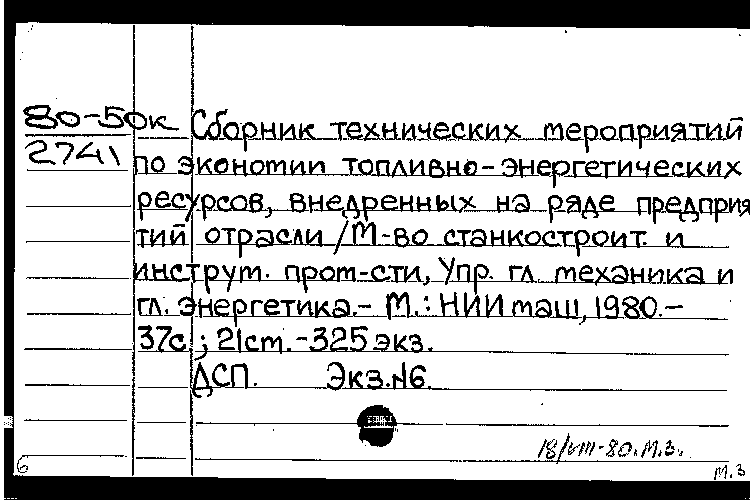 80-50к Сборник технических мероприятий
2741 по экономии топливно-энергетических
ресурсов, внедренных на ряде предприя
тий отрасли / М-во станкостроит. и
инструм. пром-сти, Упр. гл. механика и
гл. энергетика.- М.: НИИмаш, 1980.-
37с.; 21см.-325 экз.
ДСП. Экз.N6.
18/VIII-80. М.З.
6 М.З